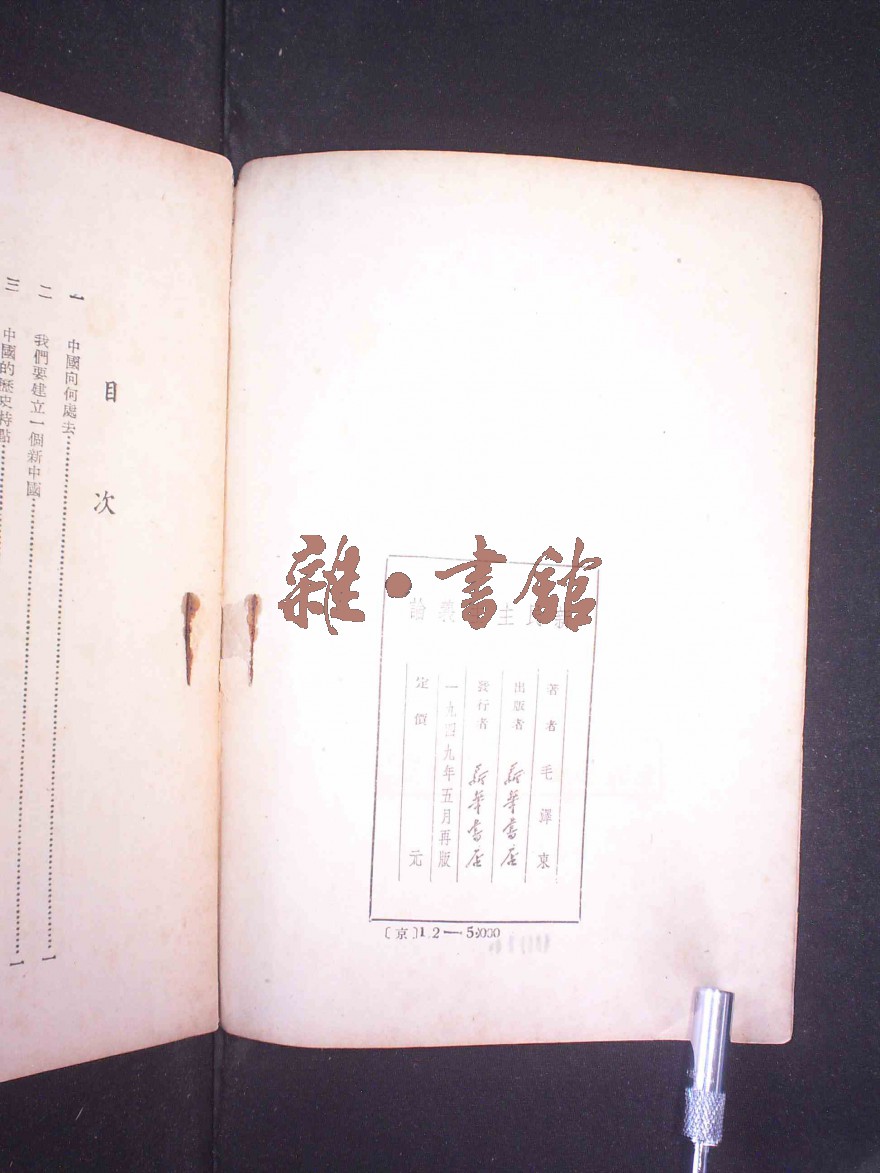 目次
一 中國向何處去 一
二 我們要建立一個新中國 一
三 中國的歷史特點
雜·書館
民主 義論
著者 毛澤東
出版者 新華書店
發行者 新華書店
一九四九年五月再版
定價 元
〔京〕1.2—5.000